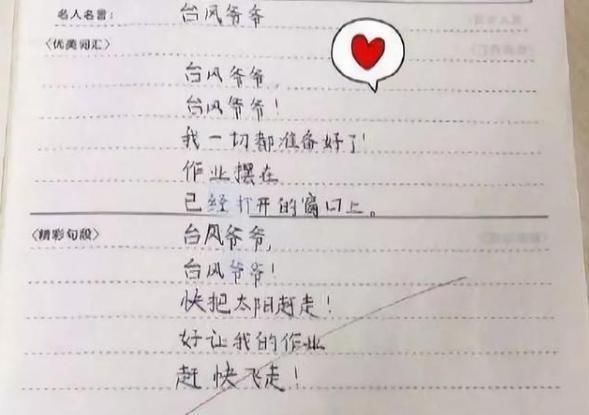 名人名言: 台风爷爷
〈优美词汇〉
台风爷爷,
台风爷爷!
我一切都准备好了!
作业摆在
已经打开的窗口上。
〈精彩句段〉 台风爷爷,
台风爷爷!
快把太阳赶走!
好让我的作业
赶快飞走!